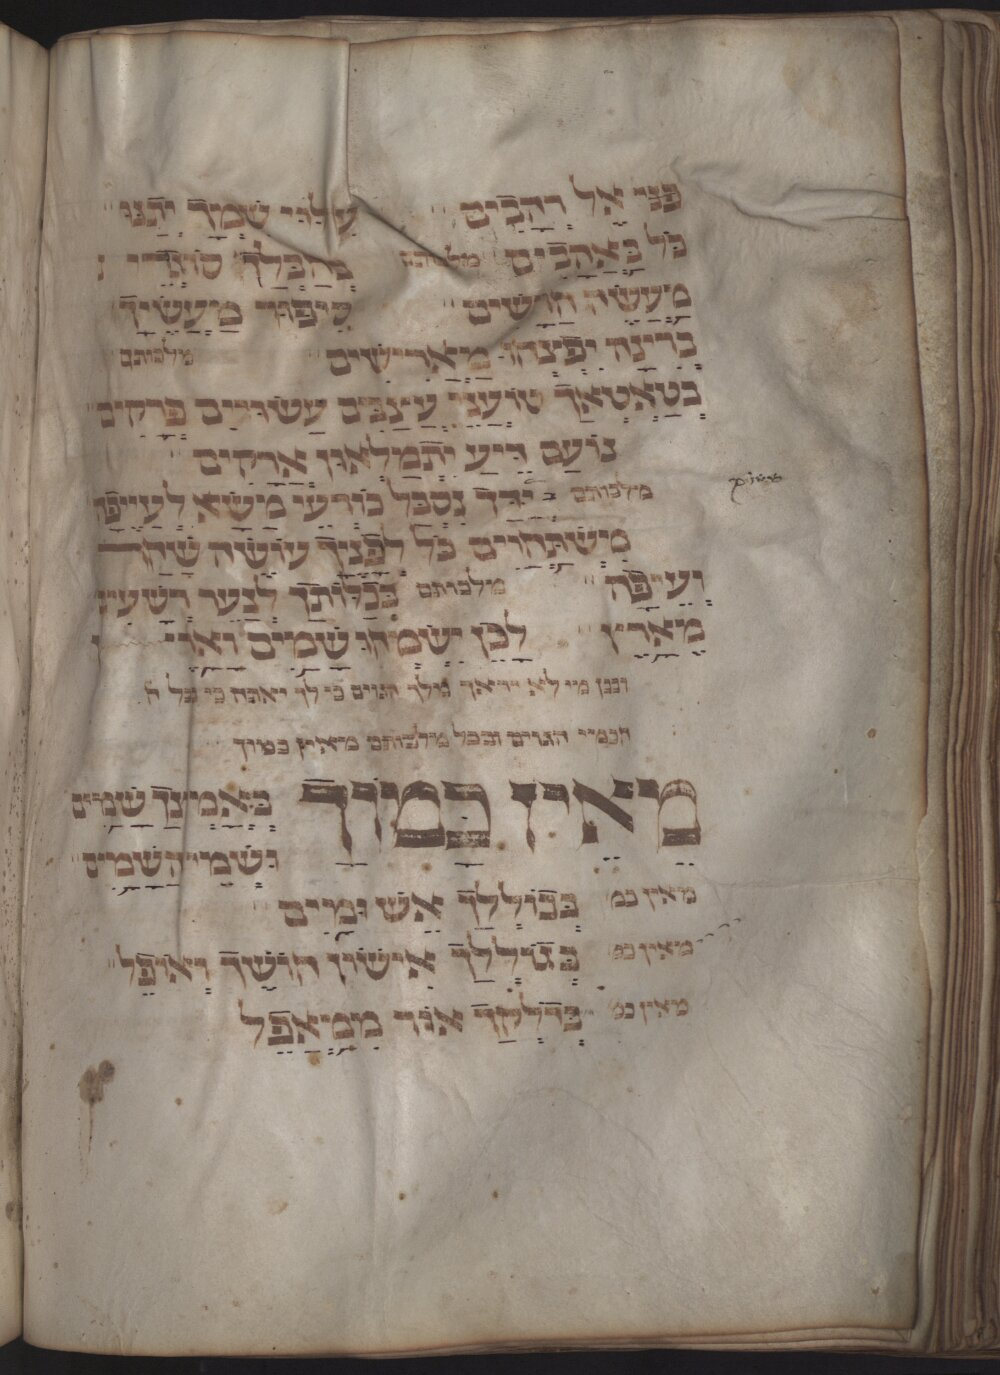 פני אל רהבים עלגי שמך יתנו
כל באהבים מלכותם בהכלך סוגדי
מעשה חרשים עיפוד מעשיך
ברינה יפצחו מארישים מלכותם
בטאטאך טוענני עינבים עשורים פרקים
נועם דיע יתמלאון ארקים
מלכותם ידך נסבל כורעי משא לעייפה
משתחוים כל לפניך עושה שחר
ועיפה מלכותם בכלותך לנער רשעים
מארץ לכן ישמחו שמים
ובכן מי לא ייראך מלך הגוים כי לך יאתה כי בכל
חכמי הגוים ובכל מלכותם מאין כמוך
מאין כמוך באמצך שמים
ושמי השמים
מאין כמ בבוללך אש ומים
מאין כמ בגוללך אישון חושך ואופל
מאין כמ בדלקך אור ממאפל